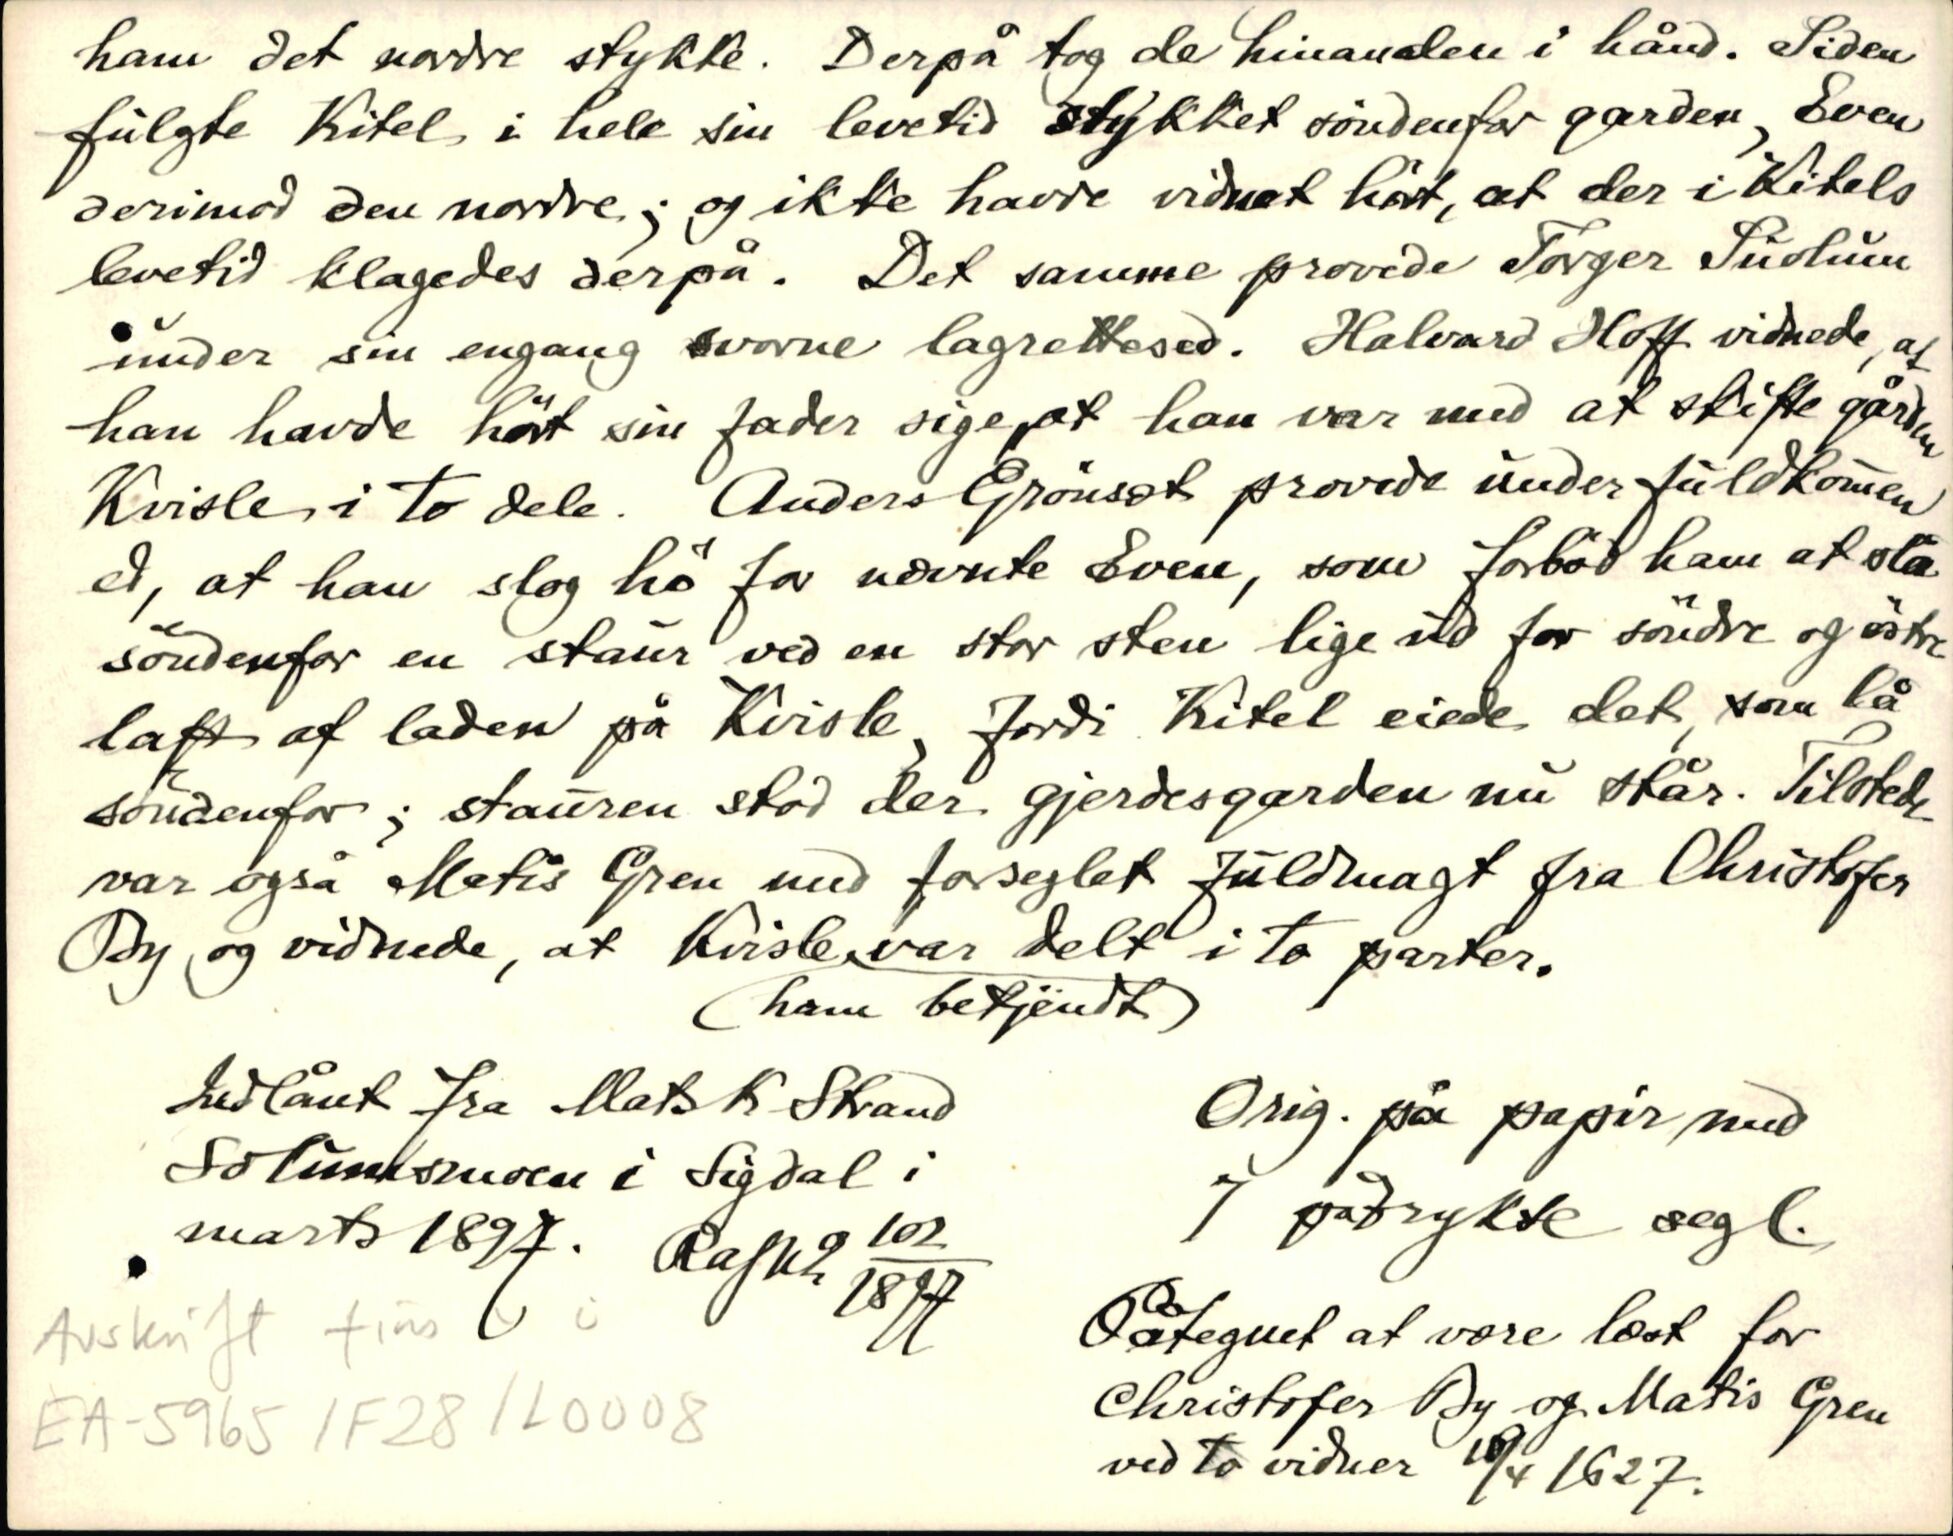 ham det nordre stykke. Derpå tog de hinanden i hånd. Siden
fulgte Kitel i hele sin levetid stykket söndenfor garden, Even
derimod den nordre; og ikke havde vidnet hört, at der i Kitels
levetid klagedes derpå. Det samme provede Torger
under sin engang svorne lagrettesed. Halvard Hoff vidnede, at
han havde hört sin fader sige, at han var med at skifte gården
Kvisle i to dele. Anders Grönset provede under fuldkom̅en
ed, at han slog hö for nævnte Even, som forböd ham at slå
söndenfor en staur ved en stor sten lige ud for söndre og östre
laft af laden på Kvisle, fordi Kitel eiede det, som lå
söndenfor; stauren stod der gjerdesgarden nu står. Tilstede
var også Matis Gren med forseglet fuldmagt fra Christofer
By, og vidnede, at Kvisle var delt i to parter.
(ham bekjendt)
Indlånt fra Mats K Strand
Solumsmoen i Sigdal i
marts 1897. 102/1897
Orig. på papir med
7 pådrykte segl.
Påtegnet at være læst for
Christofer By og Matis Gren
ved to vidner 10/4 1627.
Avskrift fins i
EA-5965/F28/L0008